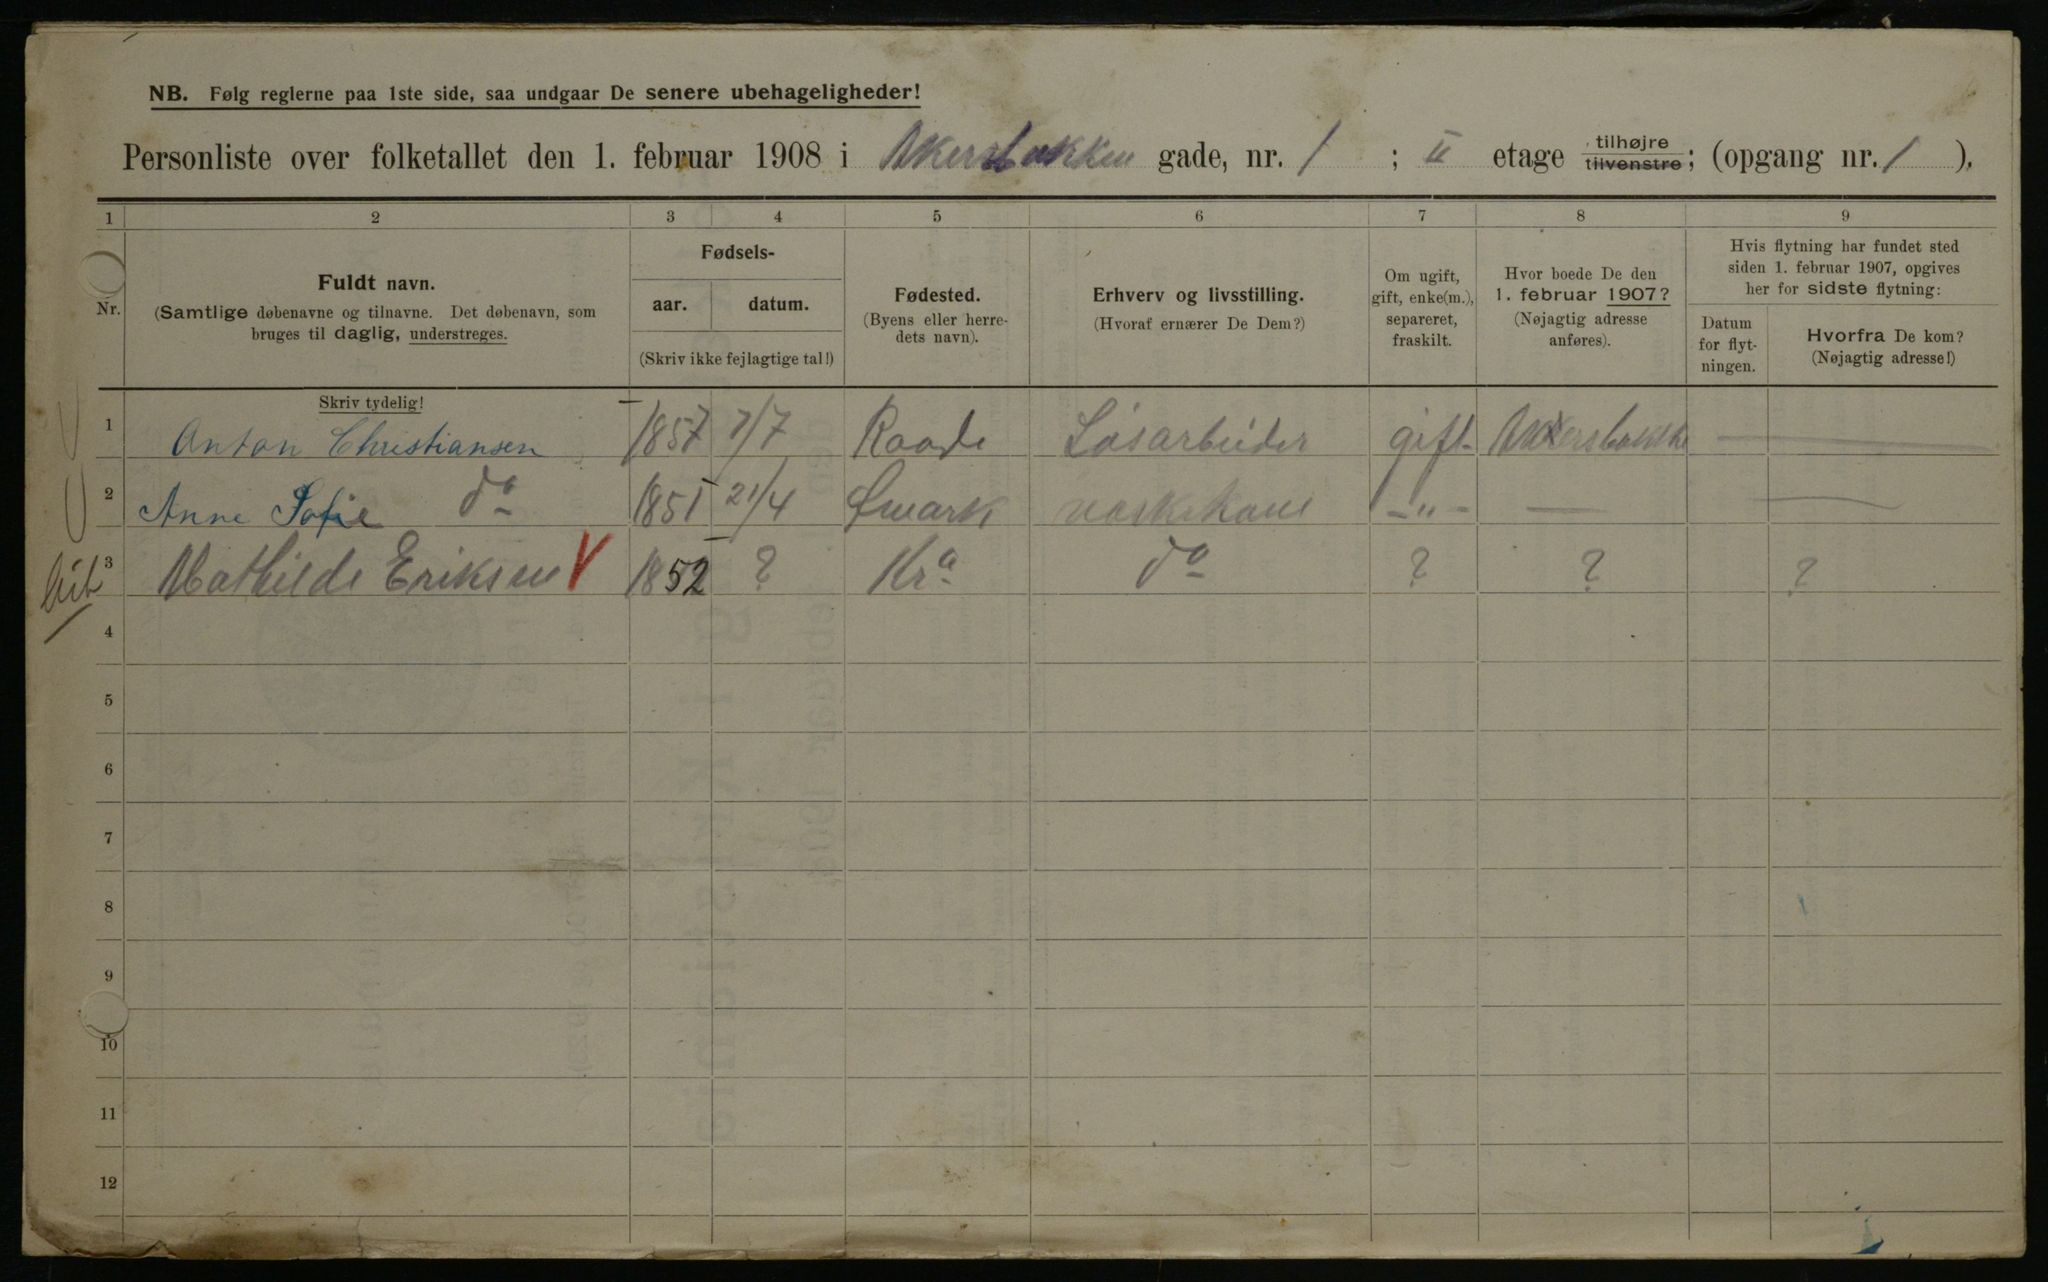 NB. Følg reglerne paa 1ste side, saa undgaar De senere ubehageligheder!
Personliste over folketallet den 1. februar 1908 i Akersbakken gade, nr. 1 ; II etage tilhøjre tilvenstre; (opgang nr. 1 ).
1 2 3 4 5 6 7 8 9
Nr.
Fuldt navn.
(Samtlige døbenavne og tilnavne. Det døbenavn, som
bruges til daglig, understreges.
Fødsels-
aar. datum.
(Skriv ikke fejlagtige tal!)
Fødested.
(Byens eller herre-
dets navn).
Erhverv og livsstilling.
(Hvoraf ernærer De Dem?)
Om ugift,
gift, enke(m.),
separeret,
fraskilt.
Hvor boede De den
1. februar 1907?
(Nøjagtig adresse
anføres).
Hvis flytning har fundet sted
siden 1. februar 1907, opgives
her for sidste flytning:
Datum
for flyt-
ningen.
Hvorfra De kom?
(Nøjagtig adresse!)
Skriv tydelig!
1 Anton Christiansen 1857 7/7 Raade Løsarbeider gift Akersbakke —
2 Anne Sofie do 1851 21/4 Ømark vaskekone -"- — —
3 Mathilde Eriksen V 1852 ? Kra do ? ? ?
4
5
6
7
8
9
10
11
12